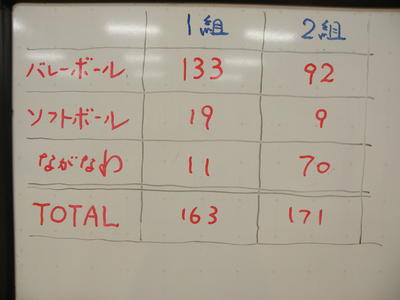 1組 2組
バレーボール 133 92
ソフトボール 19 9
ながなわ 11 70
TOTAL 163 171